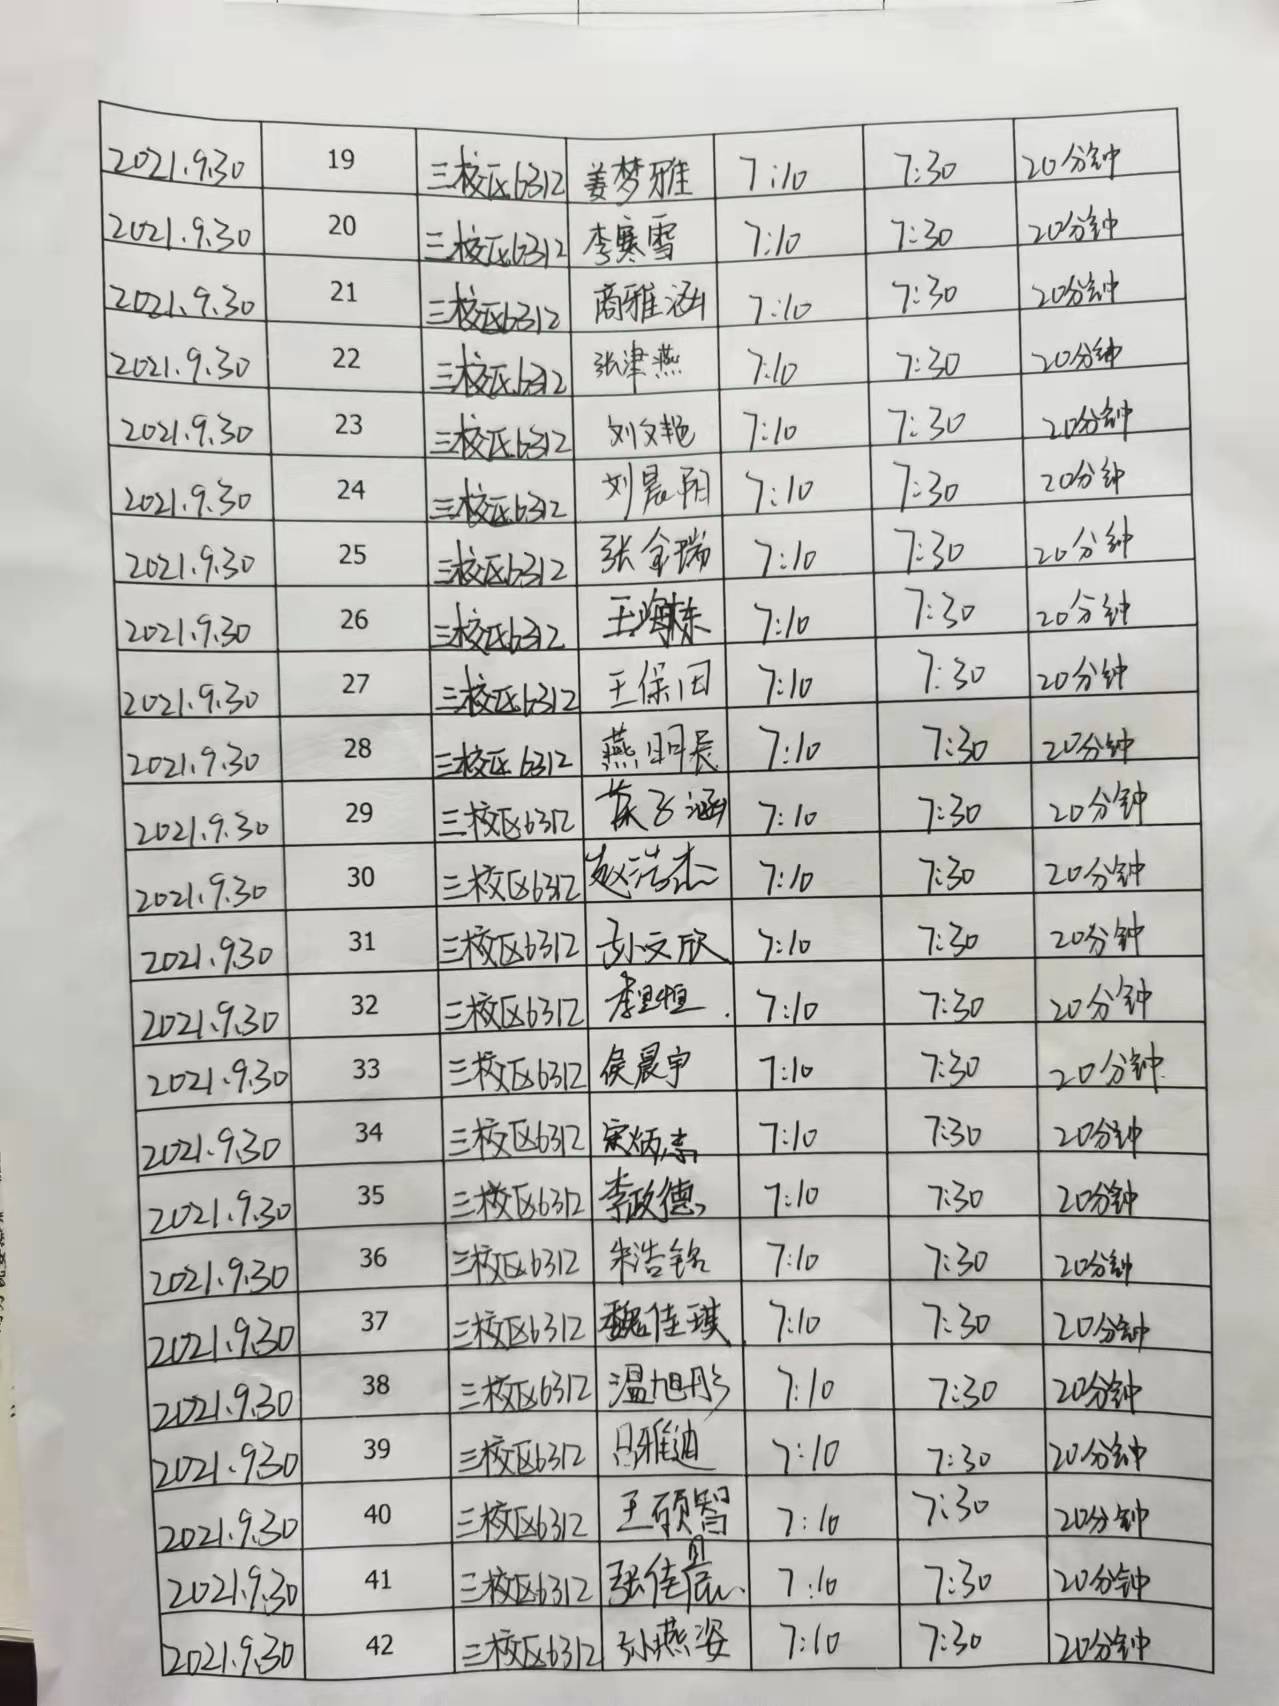 2021.9.30 19 三校区6312 姜梦雅 7:10 7:30 20分钟
2021.9.30 20 三校区6312 李寒雪 7:10 7:30 20分钟
2021.9.30 21 三校区6312 商雅涵 7:10 7:30 20分钟
2021.9.30 22 三校区6312 张津燕 7:10 7:30 20分钟
2021.9.30 23 三校区6312 刘文艳 7:10 7:30 20分钟
2021.9.30 24 三校区6312 刘晨阳 7:10 7:30 20分钟
2021.9.30 25 三校区6312 张金瑞 7:10 7:30 20分钟
2021.9.30 26 三校区6312 王海栋 7:10 7:30 20分钟
2021.9.30 27 三校区6312 王保因 7:10 7:30 20分钟
2021.9.30 28 三校区6312 燕明辰 7:10 7:30 20分钟
2021.9.30 29 三校区6312 7:10 7:30 20分钟
2021.9.30 30 三校区6312 赵浩杰 7:10 7:30 20分钟
2021.9.30 31 三校区6312 孙文欣 7:10 7:30 20分钟
2021.9.30 32 三校区6312 7:10 7:30 20分钟
2021.9.30 33 三校区6312 侯晨宇 7:10 7:30 20分钟
2021.9.30 34 三校区6312 宋炳志 7:10 7:30 20分钟
2021.9.30 35 三校区6312 李政德 7:10 7:30 20分钟
2021.9.30 36 三校区6312 朱浩铭 7:10 7:30 20分钟
2021.9.30 37 三校区6312 魏佳琪 7:10 7:30 20分钟
2021.9.30 38 三校区6312 温旭彤 7:10 7:30 20分钟
2021.9.30 39 三校区6312 吕雅迪 7:10 7:30 20分钟
2021.9.30 40 三校区6312 王硕智 7:10 7:30 20分钟
2021.9.30 41 三校区6312 张佳宸 7:10 7:30 20分钟
2021.9.30 42 三校区6312 孙燕姿 7:10 7:30 20分钟